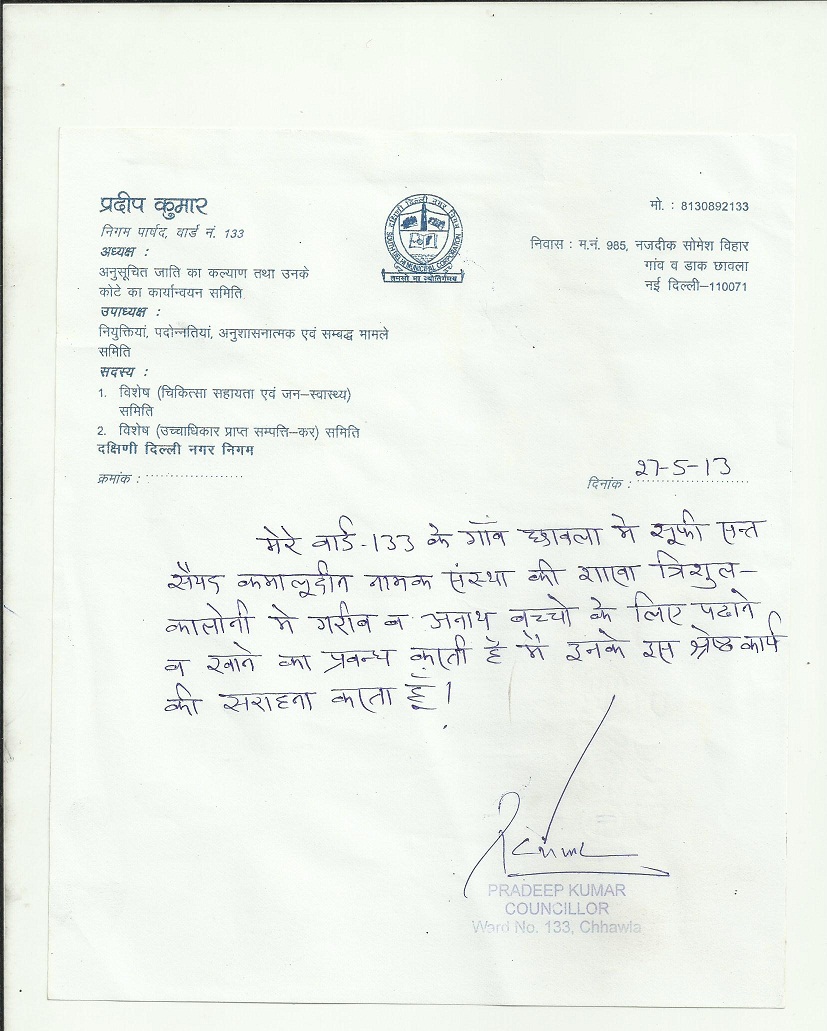 प्रदीप कुमार
निगम पार्षद, वार्ड नं. 133
अध्यक्ष :
अनुसूचित जाति का कल्याण तथा उनके
कोटे का कार्यान्वयन समिति
उपाध्यक्ष :
नियुक्तियां, पदोन्नतियां, अनुशासनात्मक एवं सम्बद्ध मामले
समिति
सदस्य :
1. विशेष (चिकित्सा सहायता एवं जन–स्वास्थ्य)
समिति
2. विशेष (उच्चाधिकार प्राप्त सम्पत्ति–कर) समिति
दक्षिणी दिल्ली नगर निगम
क्रमांक :
दक्षिणी दिल्ली नगर निगम
SOUTH DELHI MUNICIPAL CORPORATION
तमसो मा ज्योतिर्गमय
मो. : 8130892133
निवास : म.नं. 985, नजदीक सोमेश विहार
गांव व डाक छावला
नई दिल्ली–110071
दिनांक : 27-5-13
मेरे वार्ड-133 के गाँव छावला मे सूफी सन्त
सैयद कमालूदीन नामक संस्था की शाखा त्रिशुल-
कालोनी मे गरीब व अनाथ बच्चो के लिए पढाने
व खाने का प्रबन्ध करती है मै इनके इस श्रेष्ठ कार्य
की सराहना करता हूँ।
PRADEEP KUMAR
COUNCILLOR
Ward No. 133, Chhawla